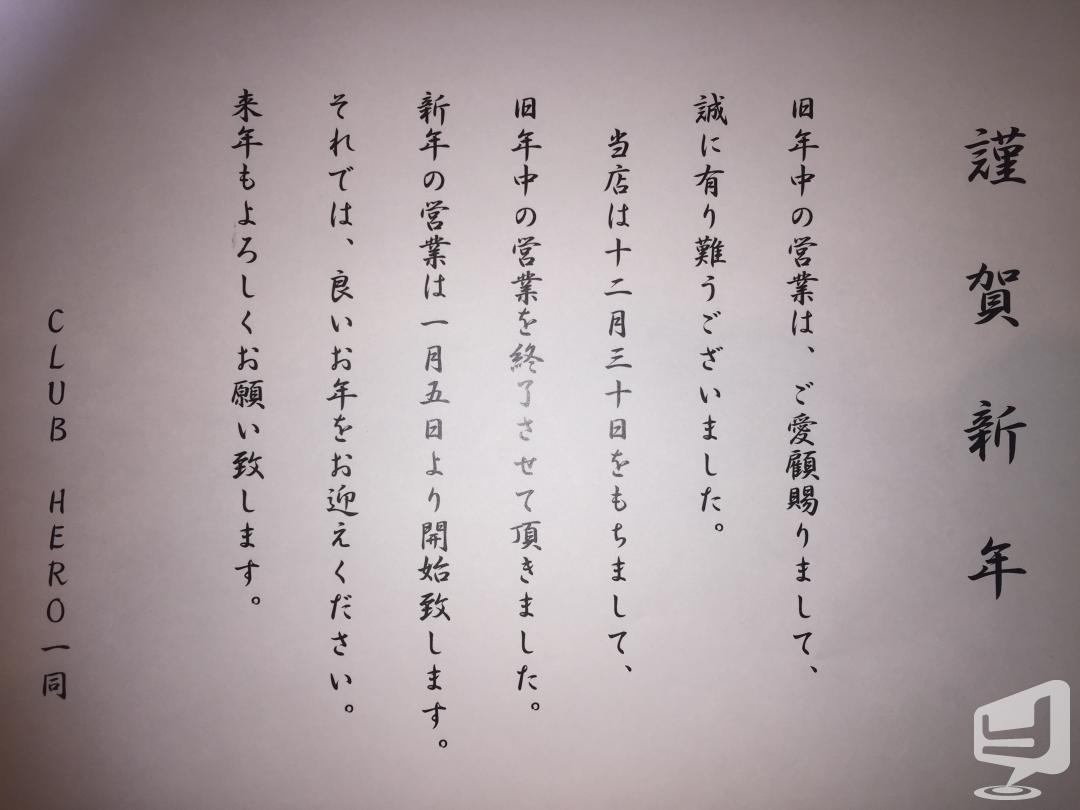 謹賀新年
旧年中の営業は、ご愛顧賜りまして、
誠に有り難うございました。
当店は十二月三十日をもちまして、
旧年中の営業を終了させて頂きました。
新年の営業は一月五日より開始致します。
それでは、良いお年をお迎えください。
来年もよろしくお願い致します。
CLUB HERO一同